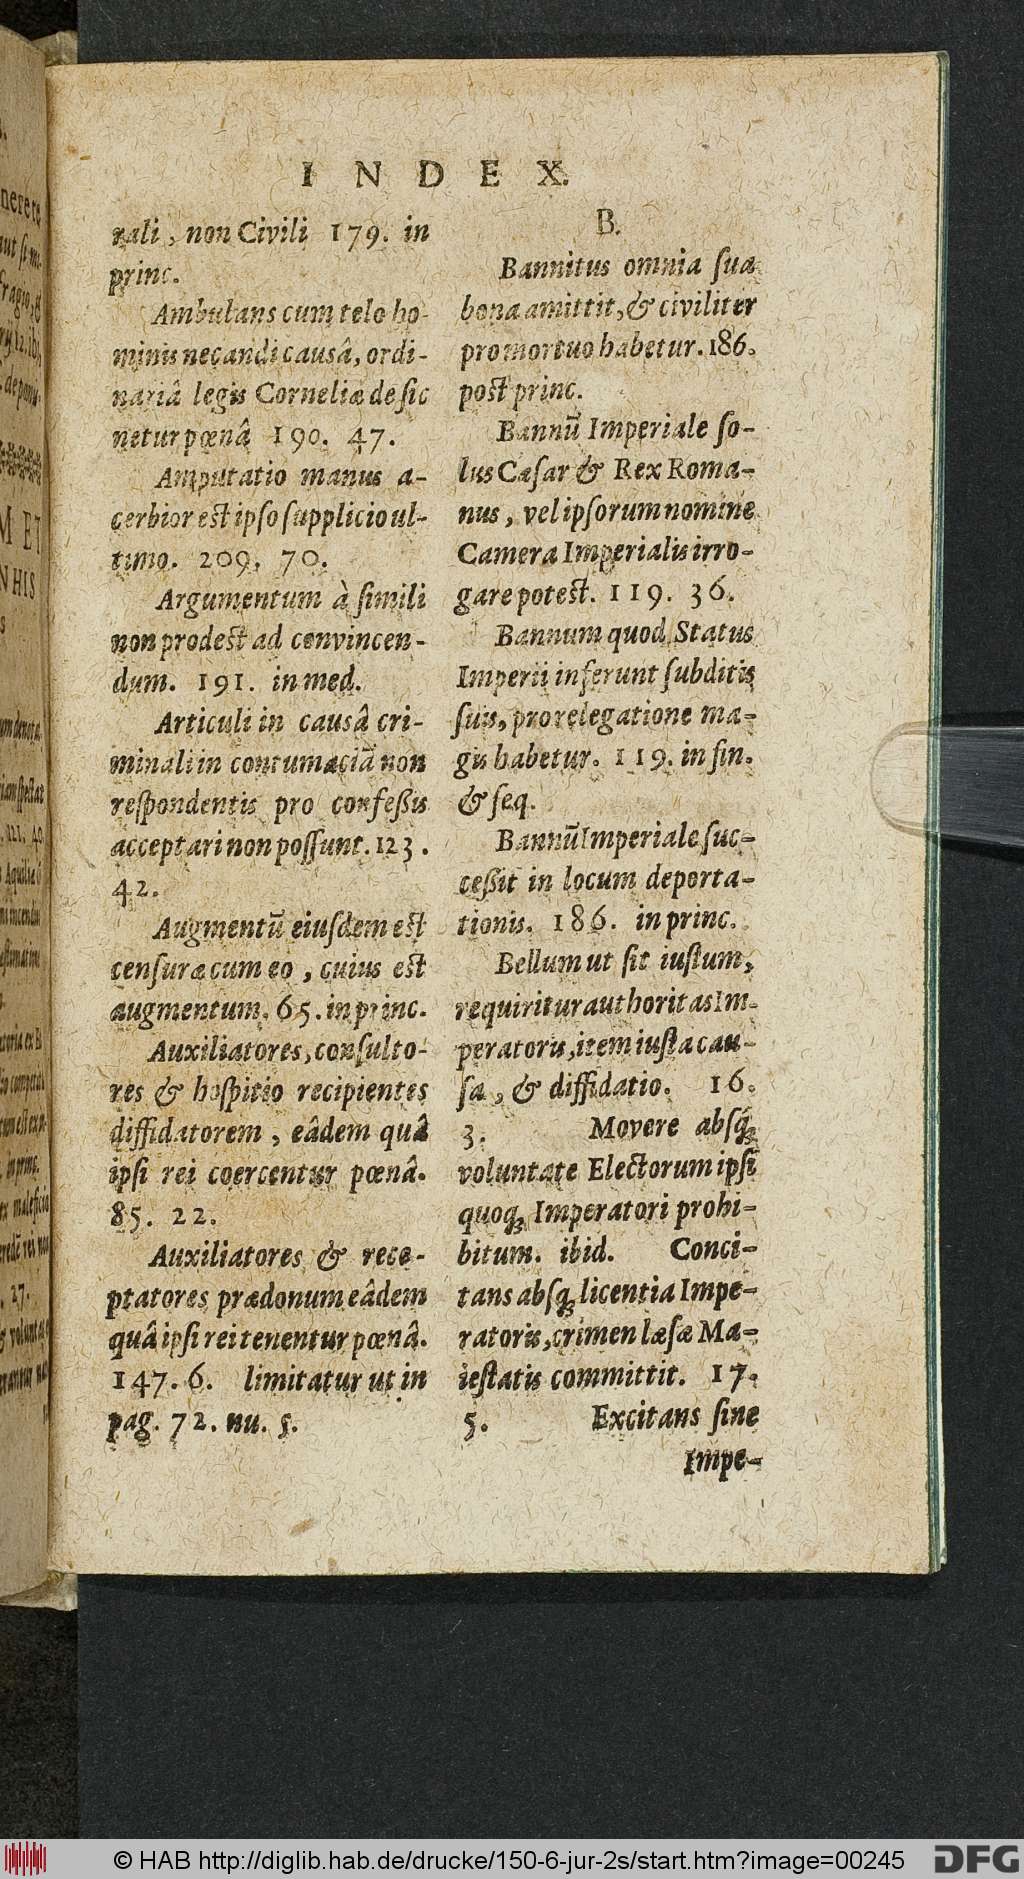 INDEX.
rali, non Civili 179. in
princ.
Ambulans cum telo ho-
minis necandi causâ, ordi-
nariâ legis Corneliæ de sic
netur pœnâ 190. 47.
Amputatio manus a-
cerbior est ipso supplicio ul-
timo. 209. 70.
Argumentum à simili
non prodest ad convincen-
dum. 191. in med.
Articuli in causâ cri-
minali in contumaciā non
respondentis pro confeßis
acceptari non possunt. 123.
42.
Augmentū eiusdem est
censuræ cum eo, cuius est
augmentum. 65. in princ.
Auxiliatores, consulto-
res & hospitio recipientes
diffidatorem, eâdem quâ
ipsi rei coercentur pœnâ.
85. 22.
Auxiliatores & rece-
ptatores prædonum eâdem
quâ ipsi rei tenentur pœnâ.
147. 6. limitatur ut in
pag. 72. nu. 5.
B.
Bannitus omnia sua
bona amittit, & civiliter
pro mortuo habetur. 186.
post princ.
Bannū Imperiale so-
lus Cæsar & Rex Roma-
nus, vel ipsorum nomine
Camera Imperialis irro-
gare potest. 119. 36.
Bannum quod Status
Imperii inferunt subditis
suis, pro relegatione ma-
gis habetur. 119. in fin.
& seq.
Bannū Imperiale suc-
ceßit in locum deporta-
tionis. 186. in princ.
Bellum ut sit iustum,
requiritur authoritas Im-
peratoris, item iusta cau-
sa, & diffidatio. 16.
3. Movere absq;
voluntate Electorum ipsi
quoq; Imperatori prohi-
bitum. ibid. Conci-
tans absq; licentia Impe-
ratoris, crimen læsæ Ma-
iestatis committit. 17.
5. Excitans sine
Impe-
© HAB http://diglib.hab.de/drucke/150-6-jur-2s/start.htm?image=00245
DFG